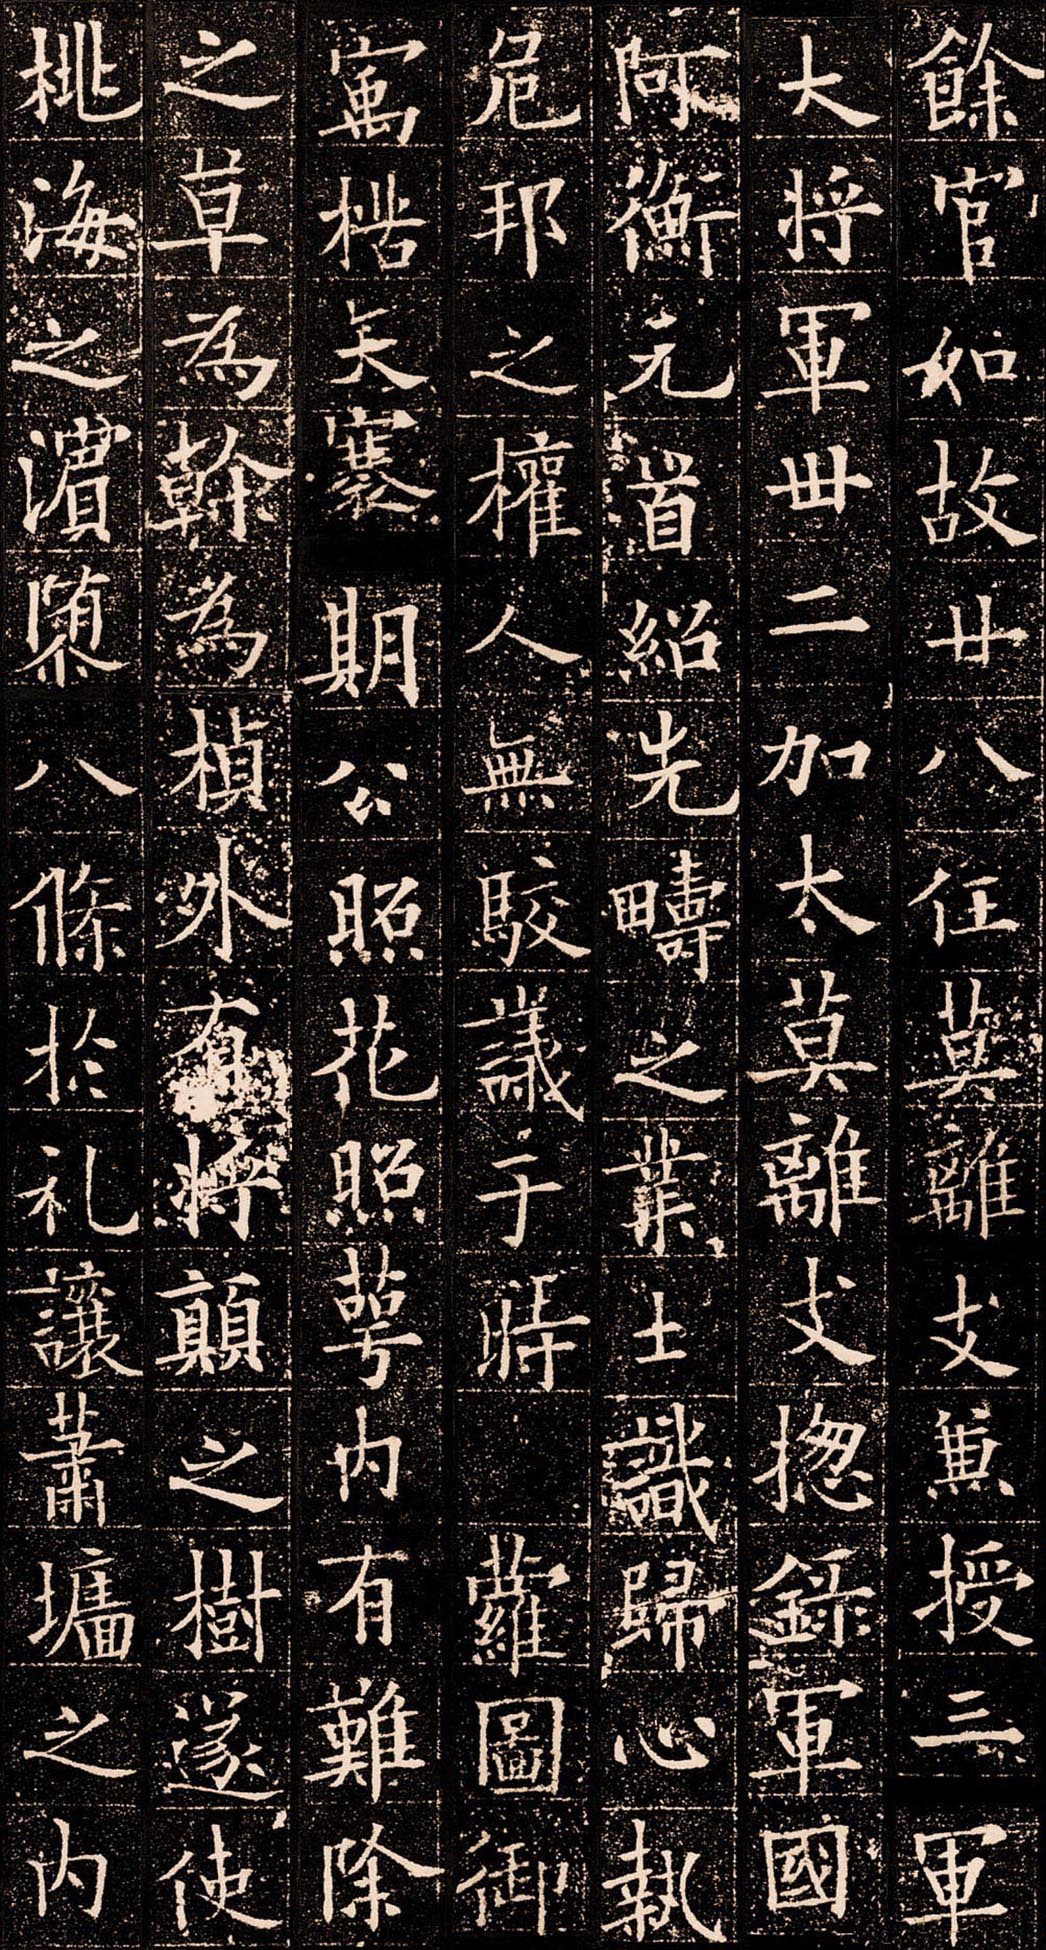 餘官如故廿八任莫離支兼授三軍
大将軍卅二加太莫離支摠錄軍國
阿衡元首紹先疇之業士識歸心執
危邦之權人無駮議于時 蘿圖御
寓楛矢褰期公照花照萼内有難除
之草為幹為楨外有将顛之樹遂使
桃海之濱隳八條於礼讓蕭墻之内